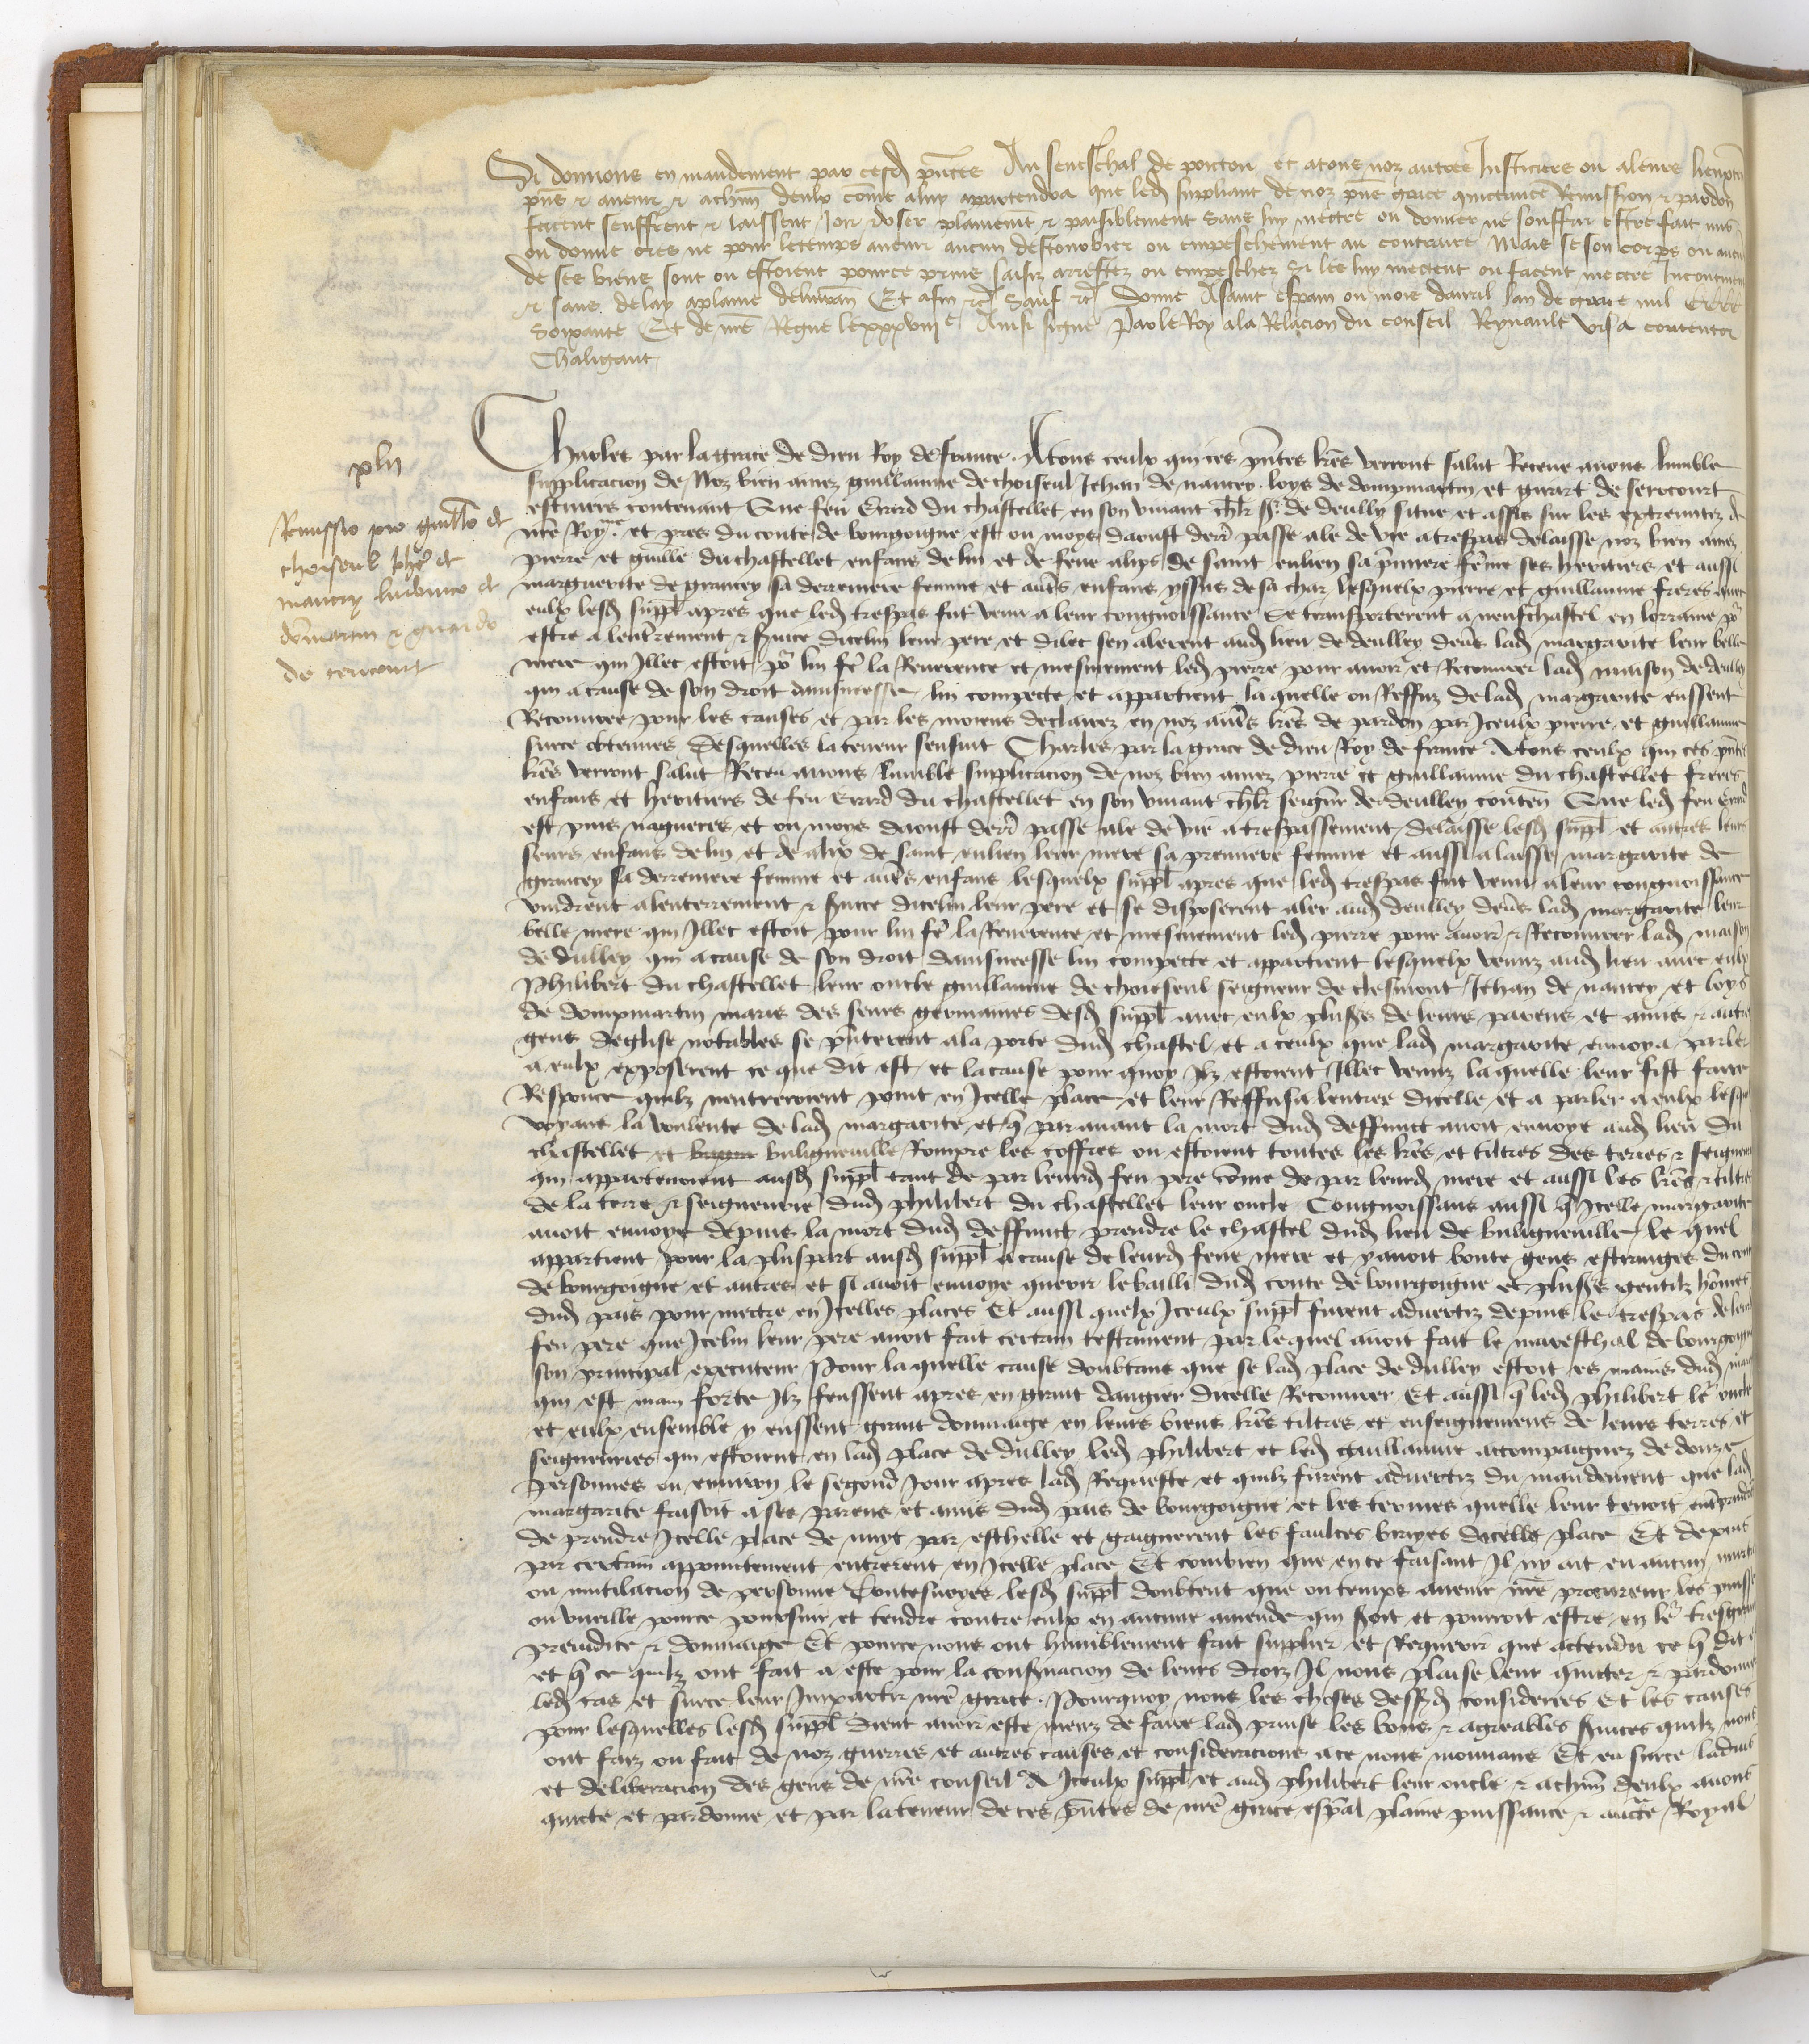 Si donnons en mandement par cesd pntes Au seneschal de poictou et a tous noz autres Justiciers ou a leurs lieuxten
pns & avenir & a chun deulx come a luy appartendra que led supliant de noz pnte grace quictance Remission & pardon
facent seuffrent & laissent Joir & user plainement & paisiblement sans luy mectre ou donner ne souffrir estre fait mis
ou donne ores ne pour le temps avenir aucun destourbier ou empeschement au contraire Mais se son corps ou aucu
de ses biens sont ou estoient pource prins saisiz arrestez ou empeschez si les luy mectent ou facent mectre Incontinen
& sans delay a plaine delivran Et afin &c Sauf &c Donne A saint espain ou mois davril lan de grace mil CCCC
Soixante Et de nre Regne le xxxviije Ainsi signe Par le Roy a la Relacion du conseil Reynault visa contentor
Chaligaut
xlij
Remissio pro guillo de
choiseul Johe de
nancey ludovico de
domartin & girardo
de cericourt
Charles par la grace de dieu Roy de france. A tous ceulx qui ces pntes lres verront salut Receue avons lumble
supplicacion de Noz bien amez guillaume de choiseul Jehan de nancey. loys de dompmartin et girart de serocourt
escuiers contenant Que feu Erard du chastellet en son vivant chlr sr de deuilly situe et assis sur les extremitez de
nre Royme et pres du conte de bourgoigne est ou moys daoust derr passe ale de vie a trespas delaisse noz bien amez
pierre et guille du chastellet enfans de lui et de feue alips de saint eulien sa pmiere feme ses heritiers et aussi
marguerite de grancey sa derreniere femme et aues enfans yssus de sa char lesquelx pierre et guillaume freres avec
eulx lesd suppl apres que led trespas fut venu a leur congnoissance se transporterent a neufchastel en lorraine pr
estre a lenterement & svice dicelui leur pere et dilec sen alerent aud lieu de deulley devs lad margarite leur belle
mere qui Illec estoit pr lui fe la Reverence et mesmement led pierre pour avoir et Recouvrer lad maison de deulley
qui a cause de son droit dainsneesse lui compecte et appartient la quelle ou Reffuz de lad margarite eussent
Recouvree pour les causes et par les moiens declairez en noz aues lres de pardon par Iceulx pierre et guillaume
surce obtenues Desquelles la teneur sensuit Charles par la grace de dieu Roy de france A tous ceulx qui ces pntes
lres verront salut Receu avons lumble supplicacion de noz bien amez pierre et guillaume du chastellet freres
enfans et heritiers de feu Erard du chastellet en son vivant chlr seigneur de deulley conten Que led feu Erard
est puis nagueres et ou moys daoust derr passe ale de vie a trespassement delaisse lesd suppl et autres leurs
seurs enfans de lui et de alix de saint eulien leur mere sa premiere femme et aussi a laisse margarite de
grancey sa derreniere femme et aues enfans lesquelx suppl apres que led trespas fut venu a leur congnoissance
vindrent a lenterrement & svice dicelui leur pere et se disposerent aler aud deulley devs lad margarite leur
belle mere qui Illec estoit pour lui fe la Reverence et mesmement led pierre pour avoir & Recouvrer lad maison
de dulley qui a cause de son droit dainsneesse lui compecte et appartient lesquelx venuz aud lieu avec eulx
Philibert du chastellet leur oncle guillaume de choiseul seigneur de clesmont Jehan de nancey et loys
de dompmartin maris des seurs germaines desd suppl avec eulx plusrs de leurs parens et amis & autres
gens deglise notables se pnterent a la porte dud chastel et a ceulx que lad margarite envoya parler
a eulx exposerent ce que dit est et la cause pour quoy Ilz estoient Illec venuz la quelle leur fist faire
Response quilz nentreroient point en Icelle place et leur Reffusa lentree dicelle et a parler a eulx lesquelx
voyans la voulente de lad margarite et q par avant la mort dud deffunct avoit envoye aud lieu du
chastellet et buligneville Rompre les coffres ou estoient toutes les lres et tiltres des terres & seigneuries
qui appartenoient ausd suppl tant de par leurd feu pere come de par leurd mere et aussi les lres & tiltres
de la terre & seigneurie dud philibert du chastellet leur oncle Congnoissans aussi q Icelle margarite
avoit envoye depuis la mort dud deffunct prendre le chastel dud lieu de buligneville le quel
appartient pour la pluspart ausd suppl a cause de leurd feue mere et y avoit boute gens estranges du conte
de bourgoigne et autres et si avoit envoye querir le bailli dud conte de bourgoigne et plusrs gentilz homes
dud pais pour mectre en Icelles places Et aussi quelx Iceulx suppl furent advertiz depuis le trespas de leurd
feu pere que Icelui leur pere avoit fait certain testament par lequel avoit fait le mareschal de bourgoigne
son principal executeur Pour laquelle cause doubtans que se lad place de dulley estoit es mains dud mares
qui est main forte Ilz feussent apres en grant dangier dicelle Recouvrer Et aussi q led philibert ler oncle
et eulx ensemble y eussent grant dommaige en leurs biens lres tiltres et enseignemens de leurs terres et
seigneuries qui estoient en lad place de dulley led philibert et led guillaume accompaignez de douze
personnes ou environ le segond jour apres lad Requeste et quilz furent advertiz du mandement que lad
margarite faisoit a ses parens et amis dud pais de bourgoigne et les termes quelle leur tenoit entreprindr
de prendre Icelle place de nuyt par eschelle et gaignerent les faulces brayes dicelle place Et depuis
par certain appointement entrerent en Icelle place Et combien que en ce faisant Il ny ait eu aucun murtre
ou mutilacion de personne Toutesvoyes lesd suppl doubtent que ou temps avenir nre procureur les puisse
ou vueille pource poursuir et tendre contre eulx en aucune amende qui soit et pourroit estre en ler tresgrant
preiudice & dommaige Et pource nous ont humblement fait supplier et Requerir que actendu ce q dit e
et q ce quilz ont fait a este pour la consvacion de leurs droiz Il nous plaise leur quicter & pardonner
led cas et surce leur Impartir nre grace. Pourquoy nous les choses dessusd considerees Et les causes
pour lesquelles lesd suppl dient avoir este meuz de faire lad prinse les bons & agreables svices quilz nous
ont faiz ou fait de noz guerres et autres causes et consideracions a ce nous mouvans Et eu surce ladvis
et deliberacion des gens de nre conseil A Iceulx suppl et aud philibert leur oncle & a chun deulx avons
quicte et pardonne et par la teneur de ces pntes de nre grace espal plaine puissance & aucte Royal